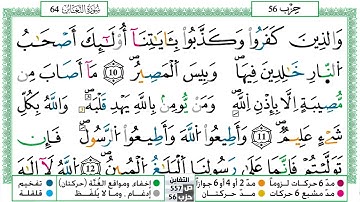 حِزْب 56
سُورَةُ التَّغَابُن 64
وَالذِينَ كَفَرُواْ وَكَذَّبُواْ بِـَٔايَٰتِنَآ أُوْلَٰٓئِكَ أَصْحَٰبُ
النّ۪ارِ خَٰلِدِينَ فِيهَا وَبِيسَ الْمَصِيرُ 10 مَآ أَصَابَ مِن
مُّصِيبَةٍ اِلَّا بِإِذْنِ اِللَّهِ وَمَنْ يُّومِنۢ بِاللَّهِ يَهْدِ قَلْبَهُۥ وَاللَّهُ بِكُلِّ
شَےْءٍ عَلِيمٌ 11 وَأَطِيعُواْ اللَّهَ وَأَطِيعُواْ الرَّسُولَ فَإِن
تَوَلَّيْتُمْ فَإِنَّمَا عَلَىٰ رَسُولِنَا اَلْبَلَٰغُ الْمُبِينُ 12 اَللَّهُ لَآ إِلَٰهَ
مدّ 6 حركات لزوماً مدّ 2 أو 4 أو 6 جوازاً
مدّ مشبع 6 حركات مدّ حركتان
التغابن
ص 557
حزب 56
إخفاء، ومواقع الغُنَّة (حركتان) تفخيم
إدغام، وما لا يُلفظ قلقلة